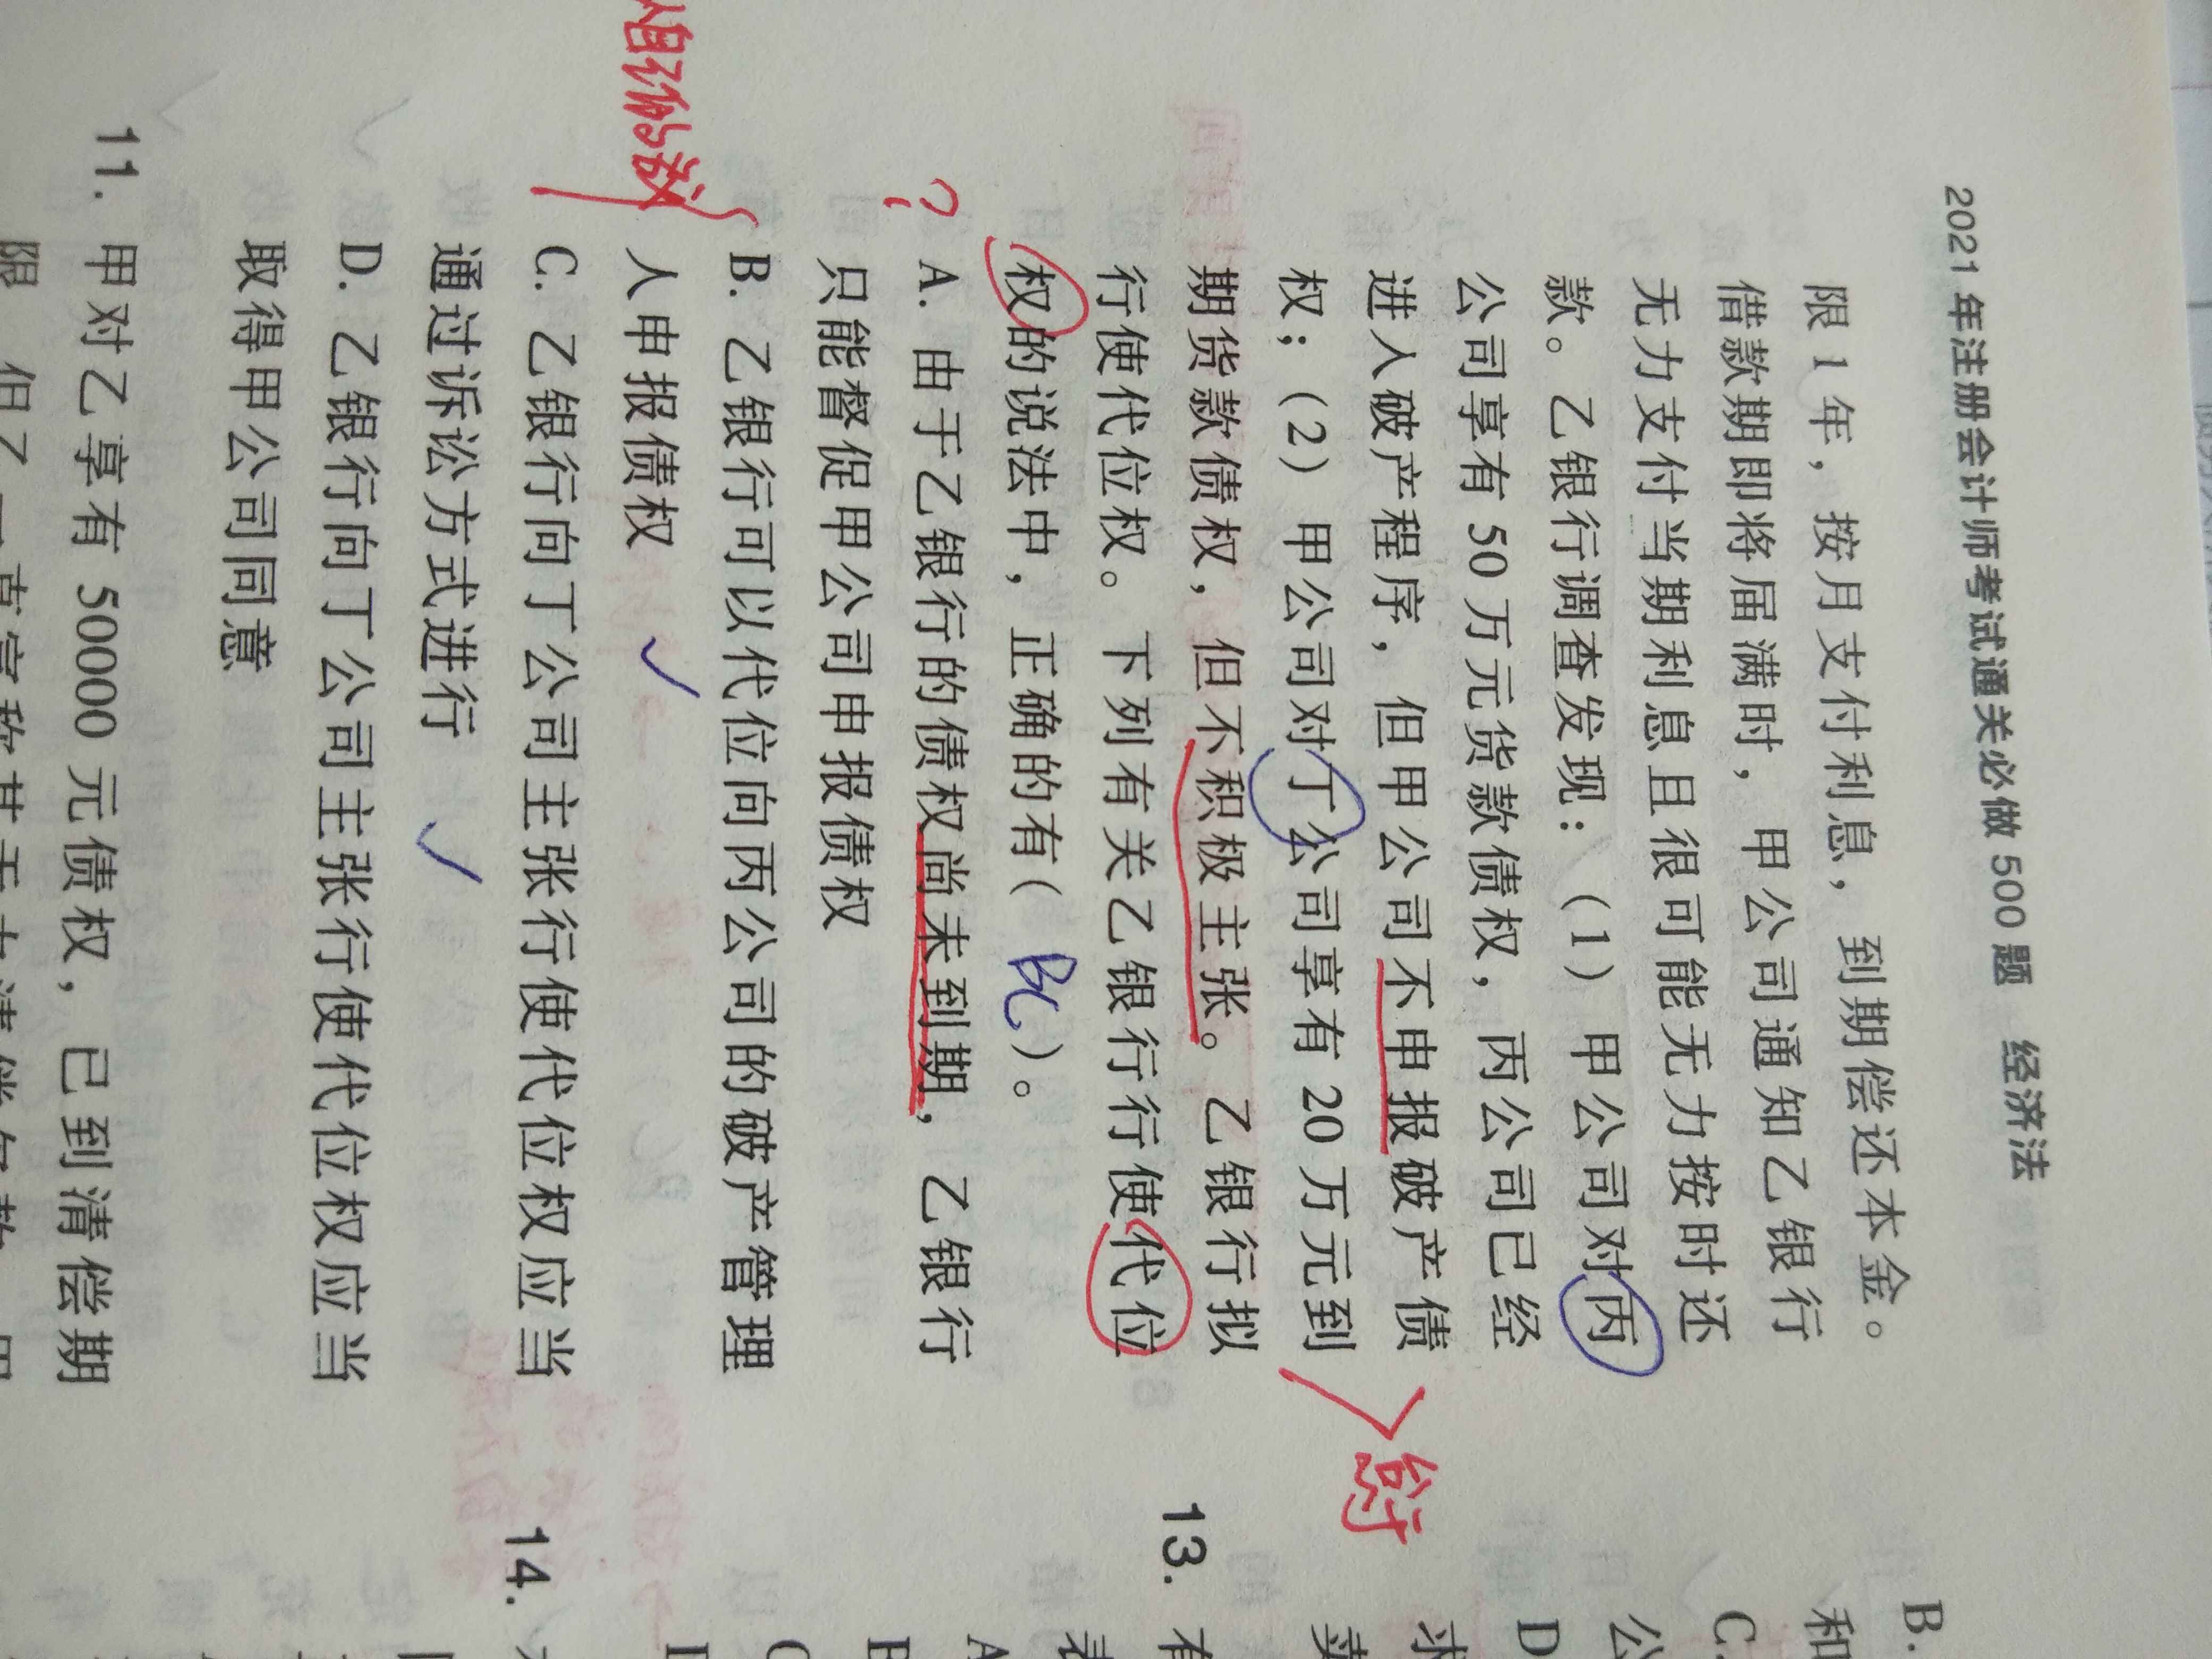 2021年注册会计师考试通关必做500题 经济法
限1年，按月支付利息，到期偿还本金。
借款期即将届满时，甲公司通知乙银行
无力支付当期利息且很可能无力按时还
款。乙银行调查发现：（1）甲公司对丙
公司享有50万元货款债权，丙公司已经
进入破产程序，但甲公司不申报破产债
权；（2）甲公司对丁公司享有20万元到
期货款债权，但不积极主张。乙银行拟
行使代位权。下列有关乙银行行使代位
权的说法中，正确的有（ BC ）。
?
A. 由于乙银行的债权尚未到期，乙银行
只能督促甲公司申报债权
B. 乙银行可以代位向丙公司的破产管理
人申报债权
C. 乙银行向丁公司主张行使代位权应当
通过诉讼方式进行
D. 乙银行向丁公司主张行使代位权应当
取得甲公司同意
11. 甲对乙享有50000元债权，已到清偿期
限，但乙一直宣称其无力清偿欠款。
B.
和
C.
公
D
求
卖
13. 有
表
A
B
C
14.